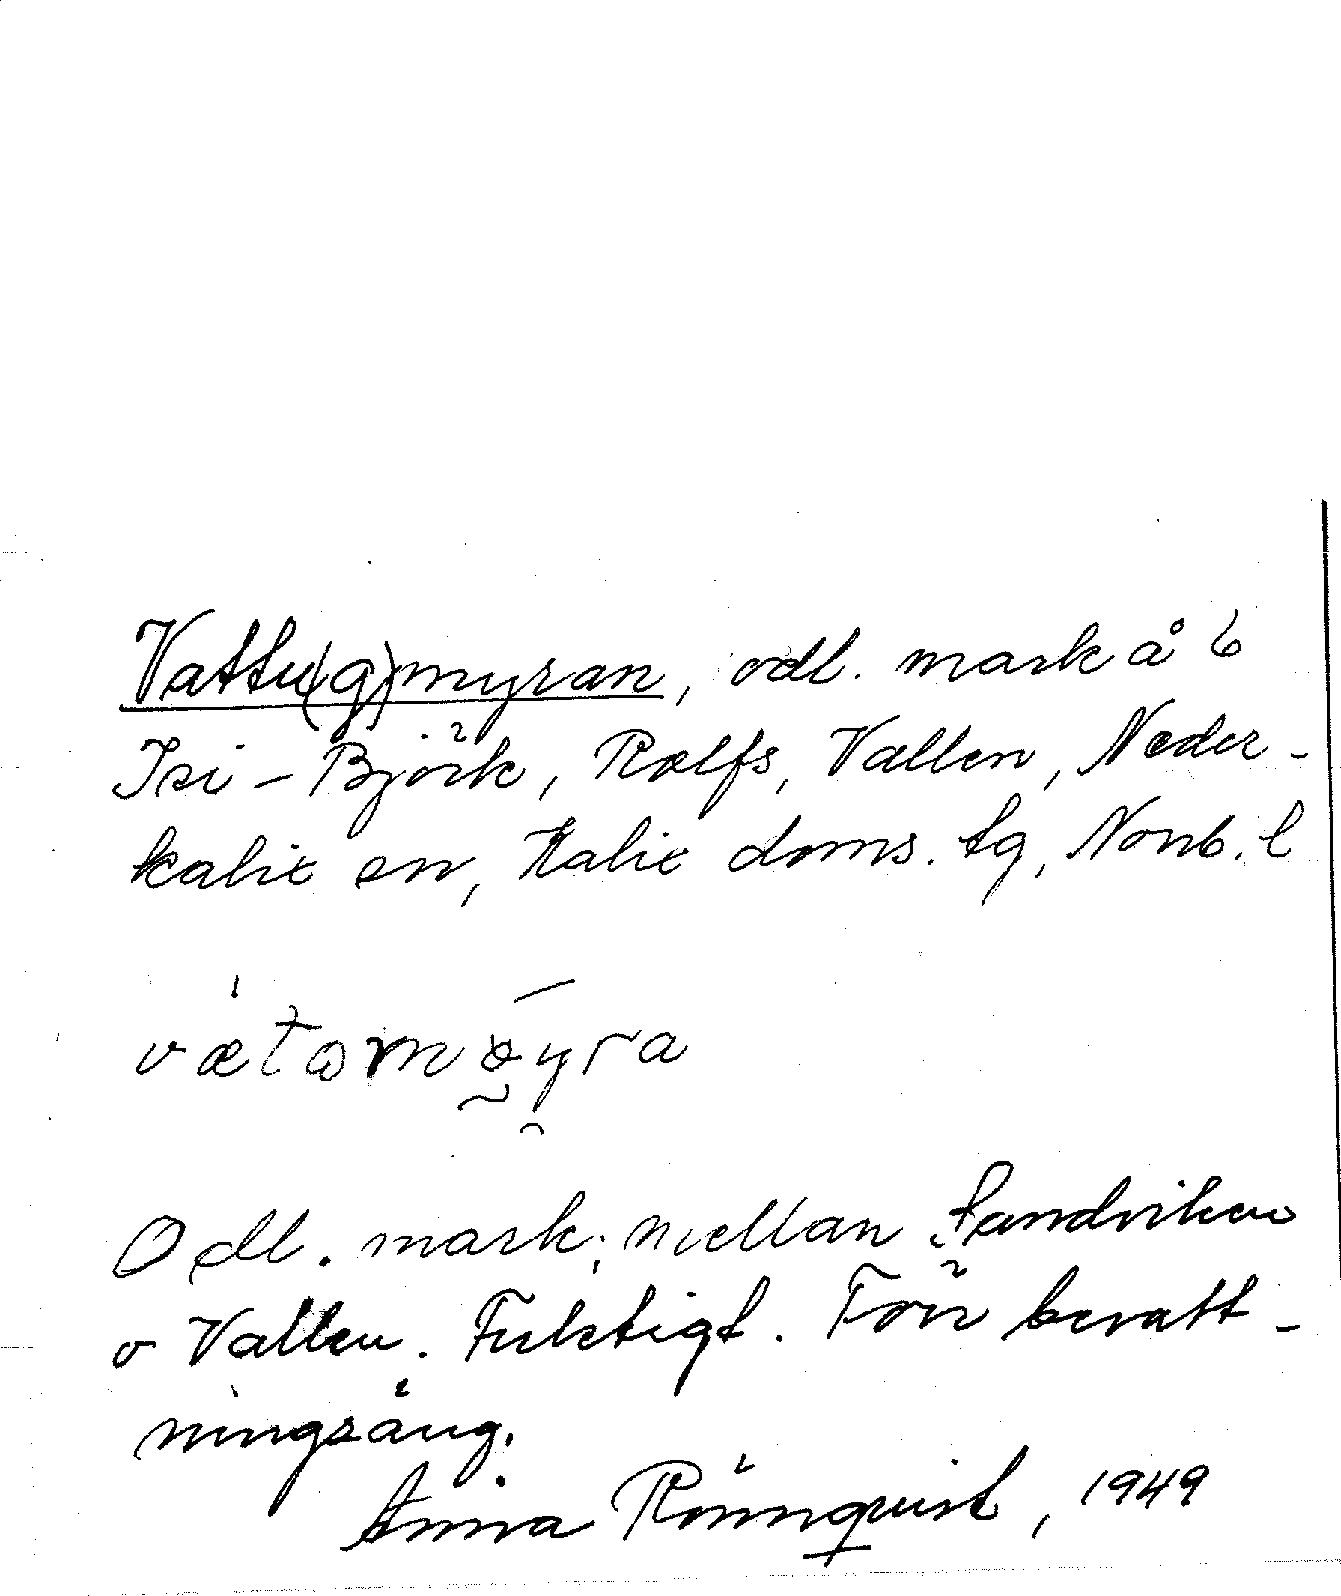 Vattu(g)myran, odl. mark å 6
Isi-Björk, Rolfs, Vallen, Neder-
kalix sn, Kalix doms. tg, Norrb. l
vætωmöyra
Odl. mark, mellan Sandviken
o Vallen. Fuktigt. Förr bevatt-
ningsäng.
Anna Rönnqvist, 1949